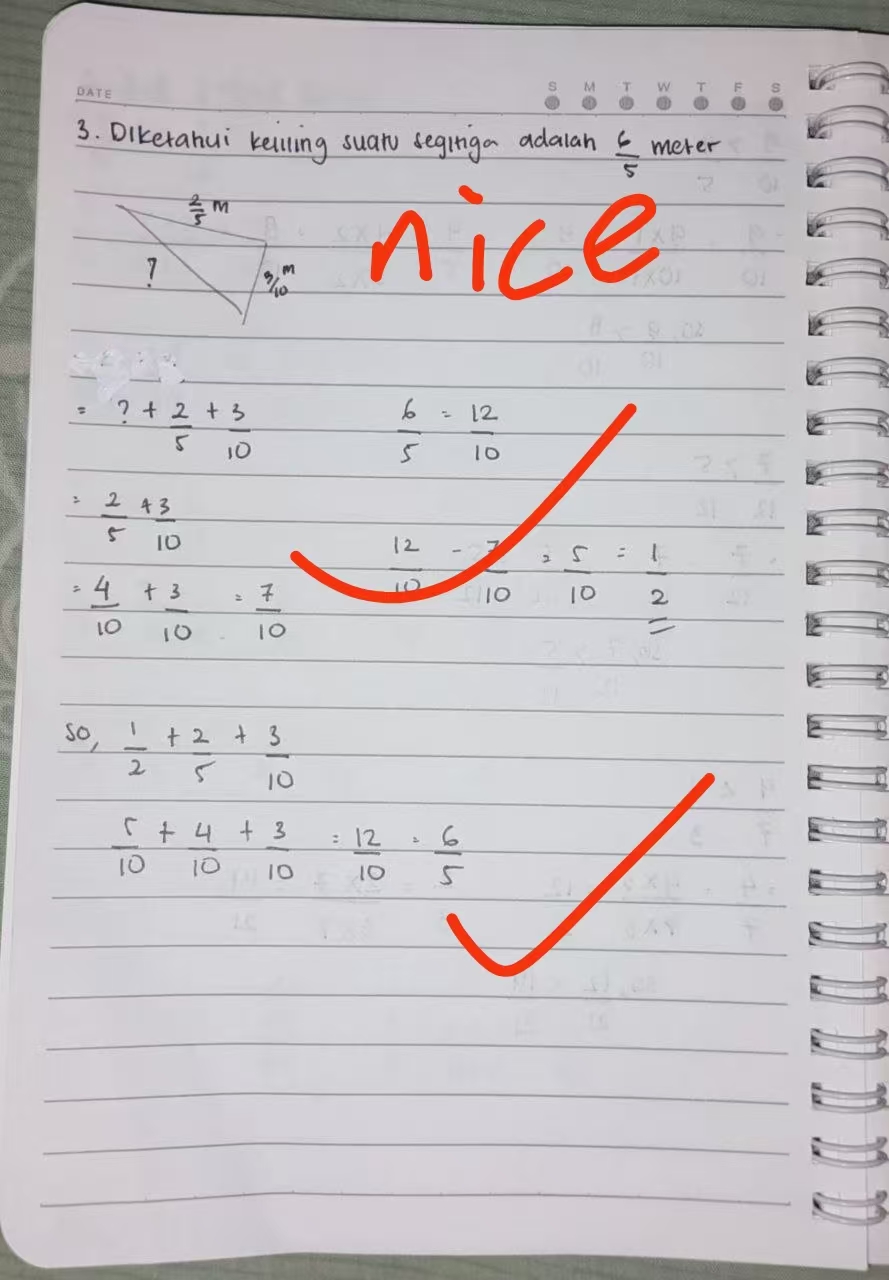 DATE
S M T W T F S
3. Diketahui keliling suatu segitiga adalah 6/5 meter
nice
2/5 m
?
3/10 m
= ? + 2/5 + 3/10
6/5 = 12/10
= 2/5 + 3/10
12/10 - 7/10 = 5/10 = 1/2
= 4/10 + 3/10 = 7/10
So, 1/2 + 2/5 + 3/10
5/10 + 4/10 + 3/10 = 12/10 = 6/5